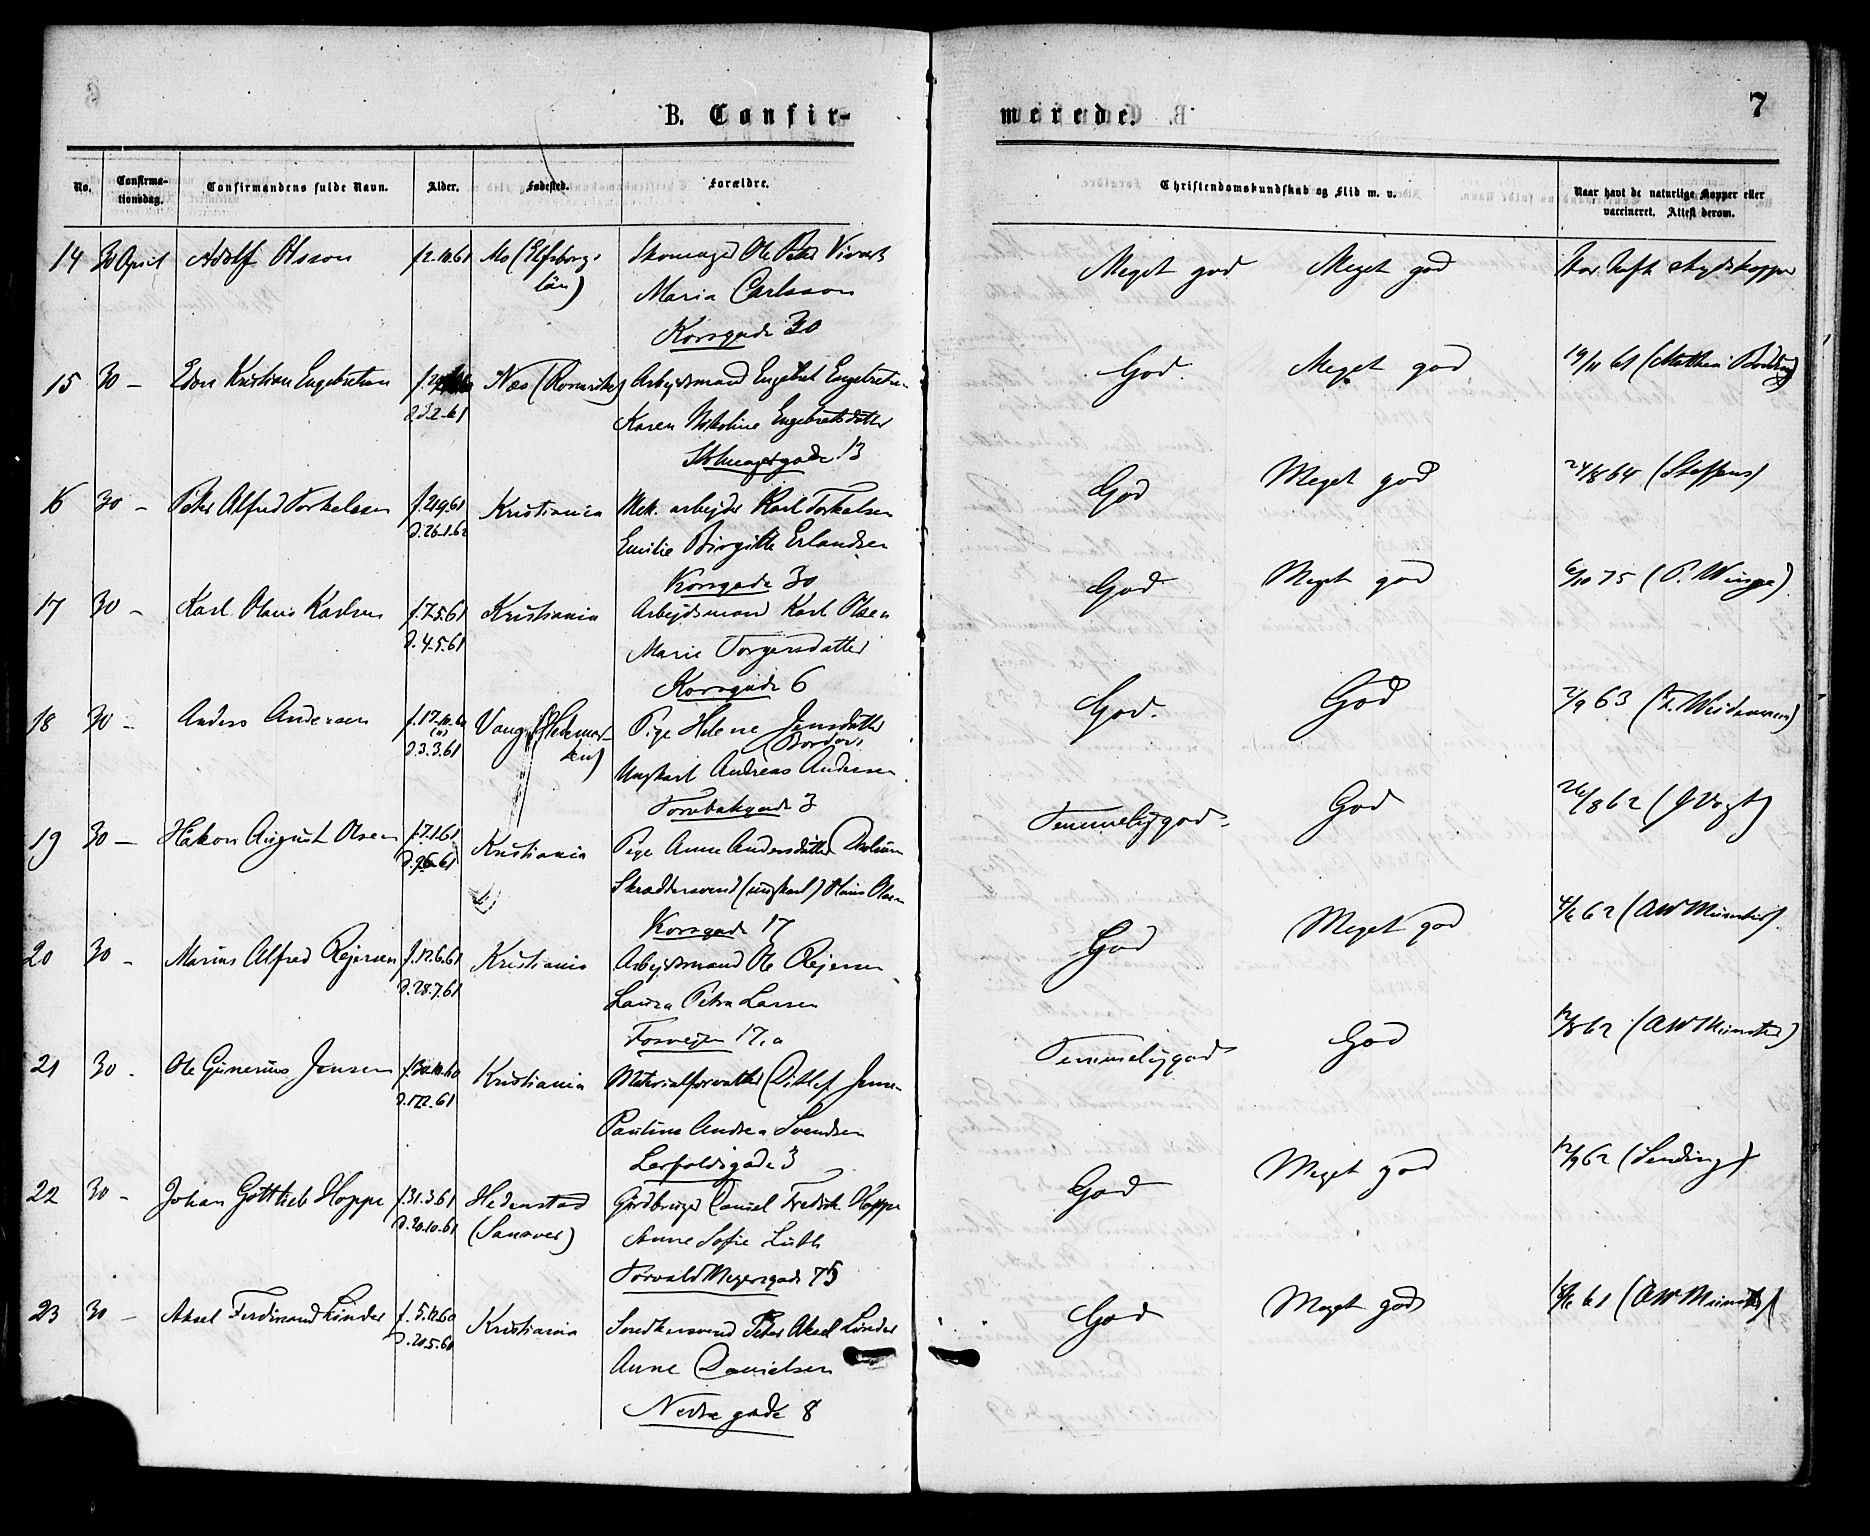 B. Confirmerede.
7
No. Confirmationsdag. Confirmandens fulde Navn. Alder. Fødested. Forældre. Christendomskundskab og Flid m. v. Naar havt de naturlige Kopper eller vaccineret. Attest derom.
14 30 April Adolf Olsson f. 2.10.61 Mo (Elfsborgs Skomager Ole Peter Meget god Meget god Har havt
län) Maria Carlsson
Korsgade 30
15 30 – Kristian Engebretsen Næs (Romerike) Arbejdsmand Engebret Engebretsen God. Meget god 19/11 61
Karen Nikoline Engebretsdatter
Skomagergade 13
16 30 – Peter Alfred Torkelsen f. 21.9.61 Kristiania Mek. arbejder Karl Torkelsen God Meget god 24/8 64 (Steffens)
d. 26.1.62 Emilie Birgitte Erlandsen
Korsgade 30
17 30 – Karl Olaus Karlsen f. 7.5.61 Kristiania Arbejdsmand Karl Olsen God Meget god 6/10 75 (P. Winge)
d. 4.5.61 Marie Torgersdatter
Korsgade 6
18 30 – Anders Andersen Vang (Hedemar- Pige Helene Jensdatter God. God 2/9 63
d. 3.3.61 ken)
Ungkarl Andreas Andersen
Torvbakgade 3
19 30 – Håkon August Olsen f. 7.1.61 Kristiania Pige Anne Andersdatter Temmelig god. God 26/8 62 (J Vogt)
Skræddersvend (ungkarl) Olaus Olsen
Korsgade 17
20 30 – Marius Alfred Rejersen f. 12.6.61 Kristiania Arbejdsmand Ole Rejersen God Meget god 4/6 62 (AW Münster)
d. 28.7.61 Laura Petra Larsen
Fosvejen 17, a
21 30 – Ole Gunerius Jensen f. 30.10.60 Kristiania Materialforvalter Ditlef Jensen Temmelig god God 12/8 62 (AW Münster)
d. 17.2.61 Pauline Andrea Svendsen
Leopoldsgade 3
22 30 – Johan Gottlieb Hoppe f. 31.3.61 Hedenstad Gårdbruger Daniel Fredrik Hoppe God Meget god 12/9 62 (Sending)
d. 20.10.61 (Sansver) Anne Sofie Luth
Torvald Meyersgade 75
23 30 – Aksel Ferdinand Linder f. 5.12.60 Kristiania Snedkersvend Peter Aksel Linder God Meget god 18/6 61 (AW Münster)
d. 20.5.61 Anne Danielsen
Nedre gade 8